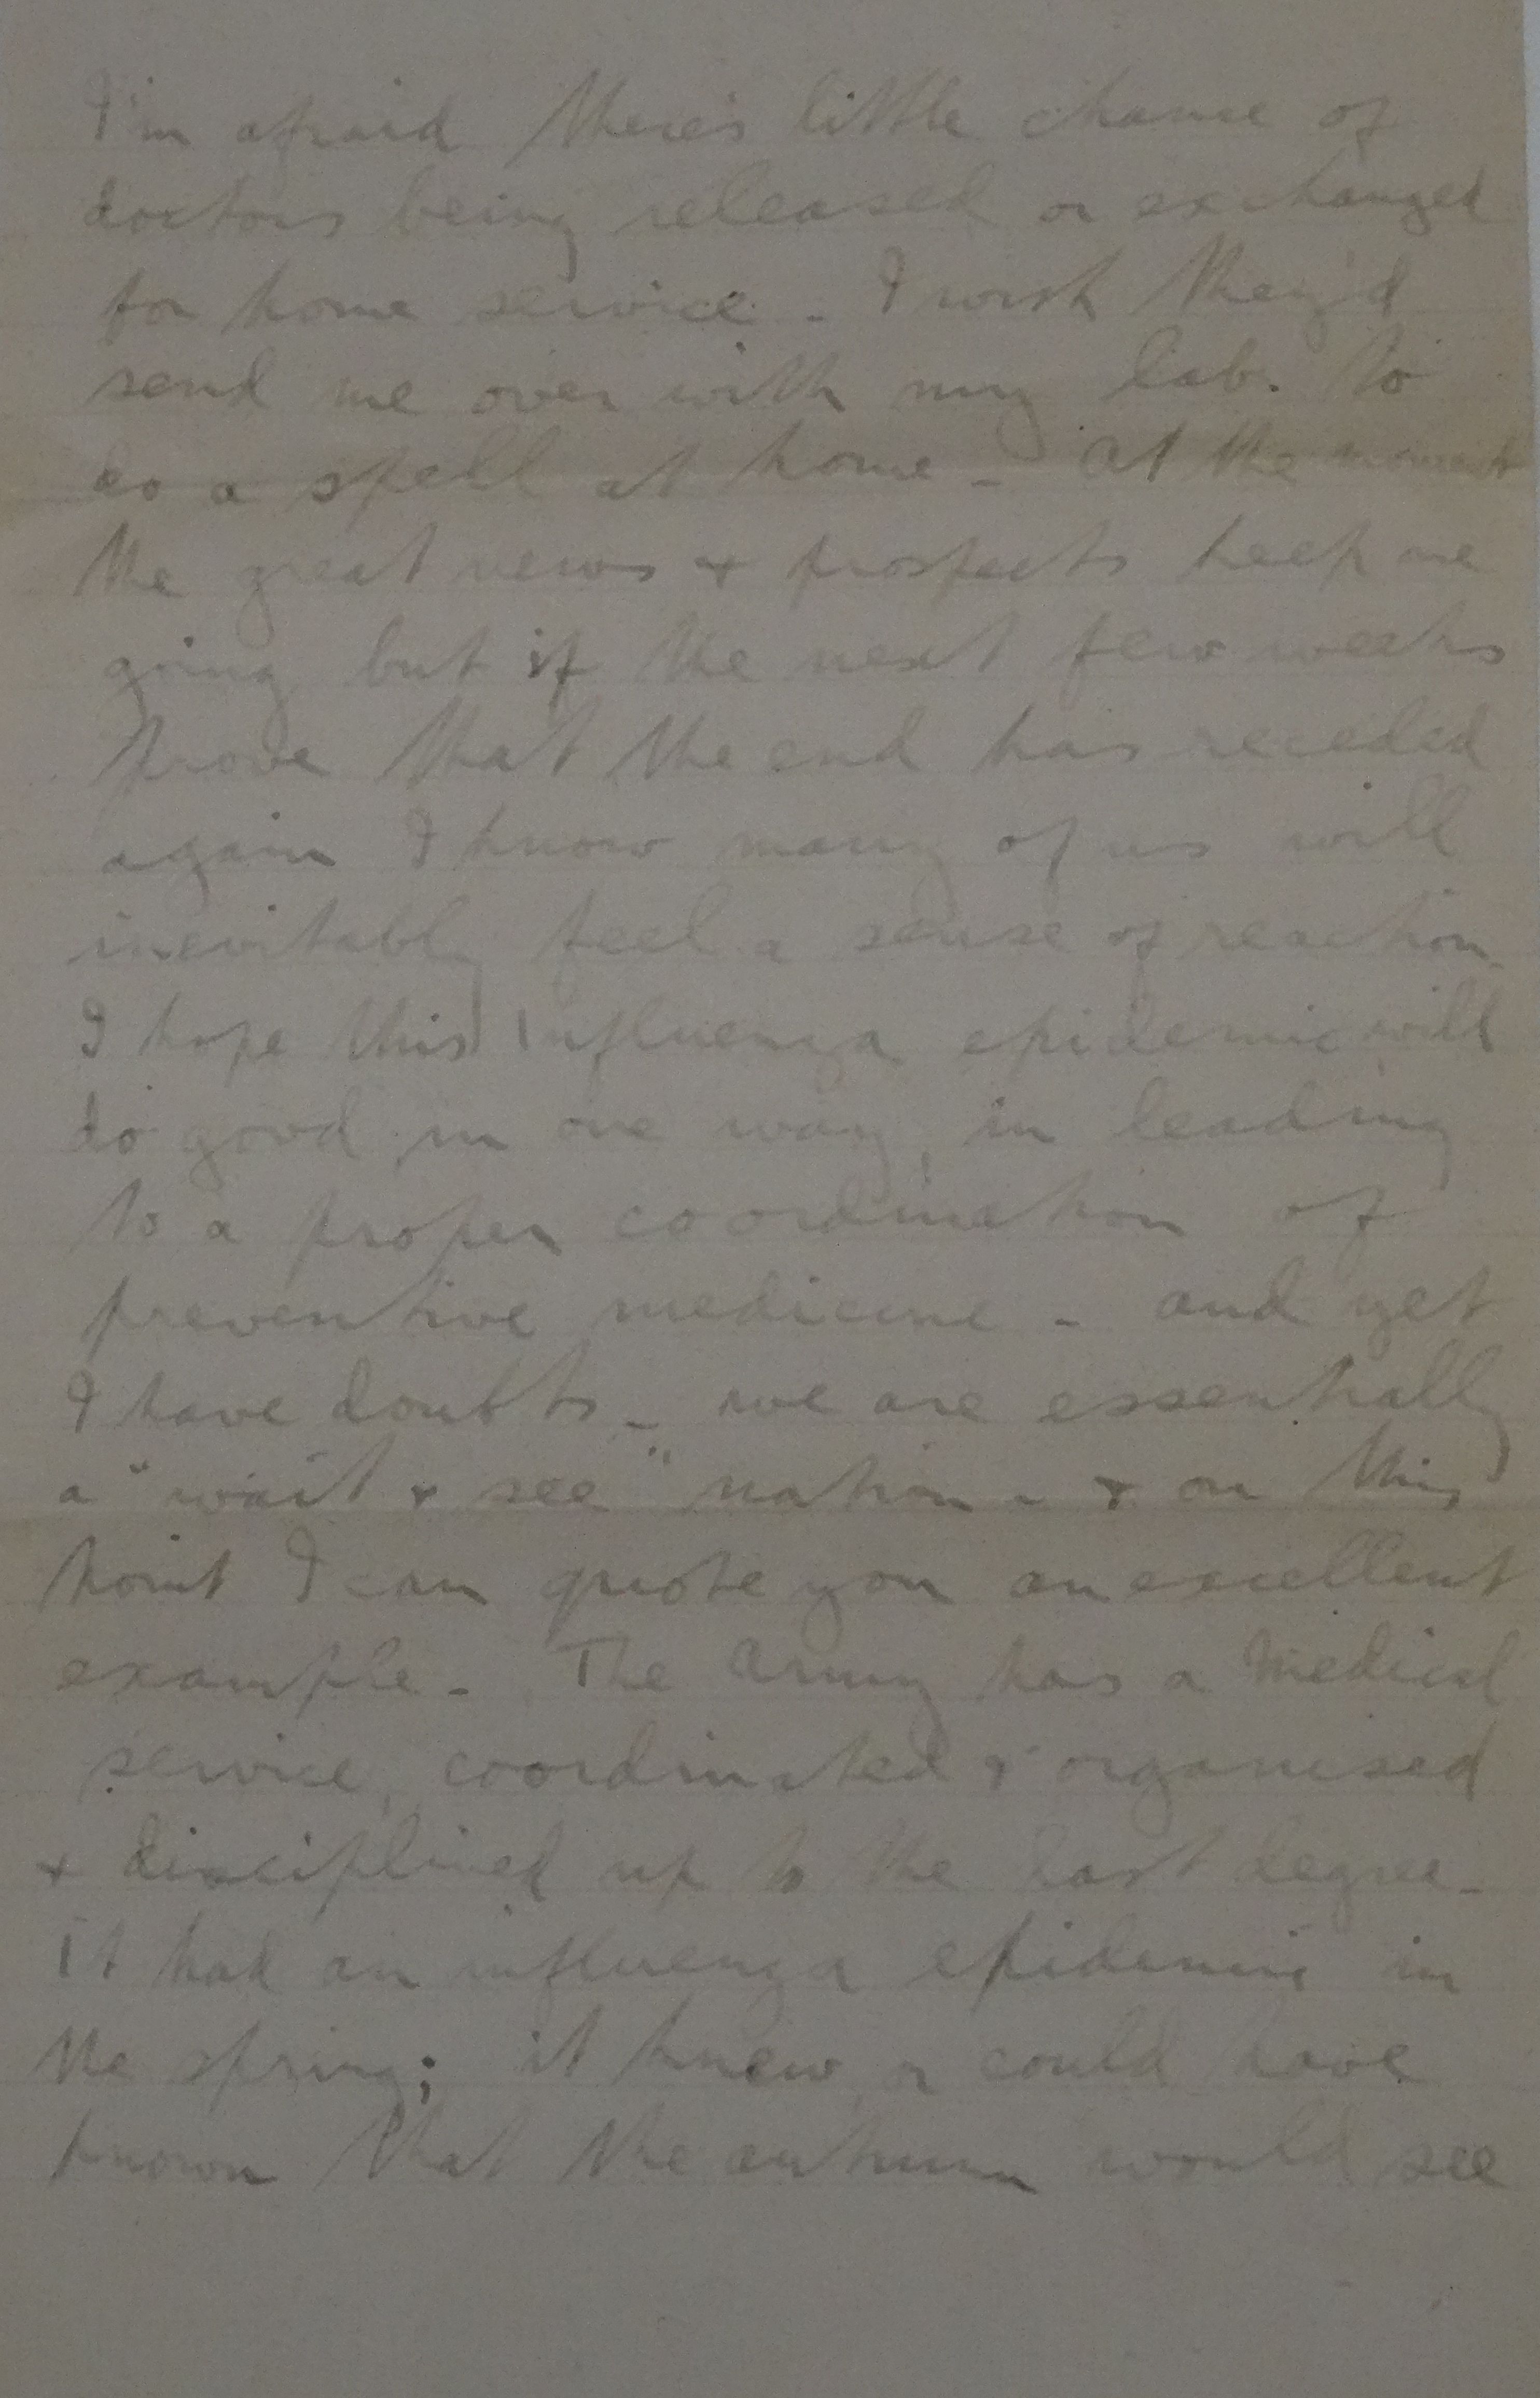 I'm afraid there's little chance of
doctors being released or exchanged
for home service - I wish they'd
send me over with my lab. to
do a spell at home - At the moment
the great news & prospects keep one
going but if the next few weeks
prove that the end has receded
again I know many of us will
inevitably feel a sense of reaction.
I hope this Influenza epidemic will
do good in one way, in leading
to a proper coordination of
preventive medicine - and yet
I have doubts - we are essentially
a "wait & see" nation - & on this
point I can quote you an excellent
example - The Army has a Medical
service, coordinated & organised
& disciplined up to the last degree -
It had an influenza epidemic in
the spring; it knew, or could have
known that the autumn would see